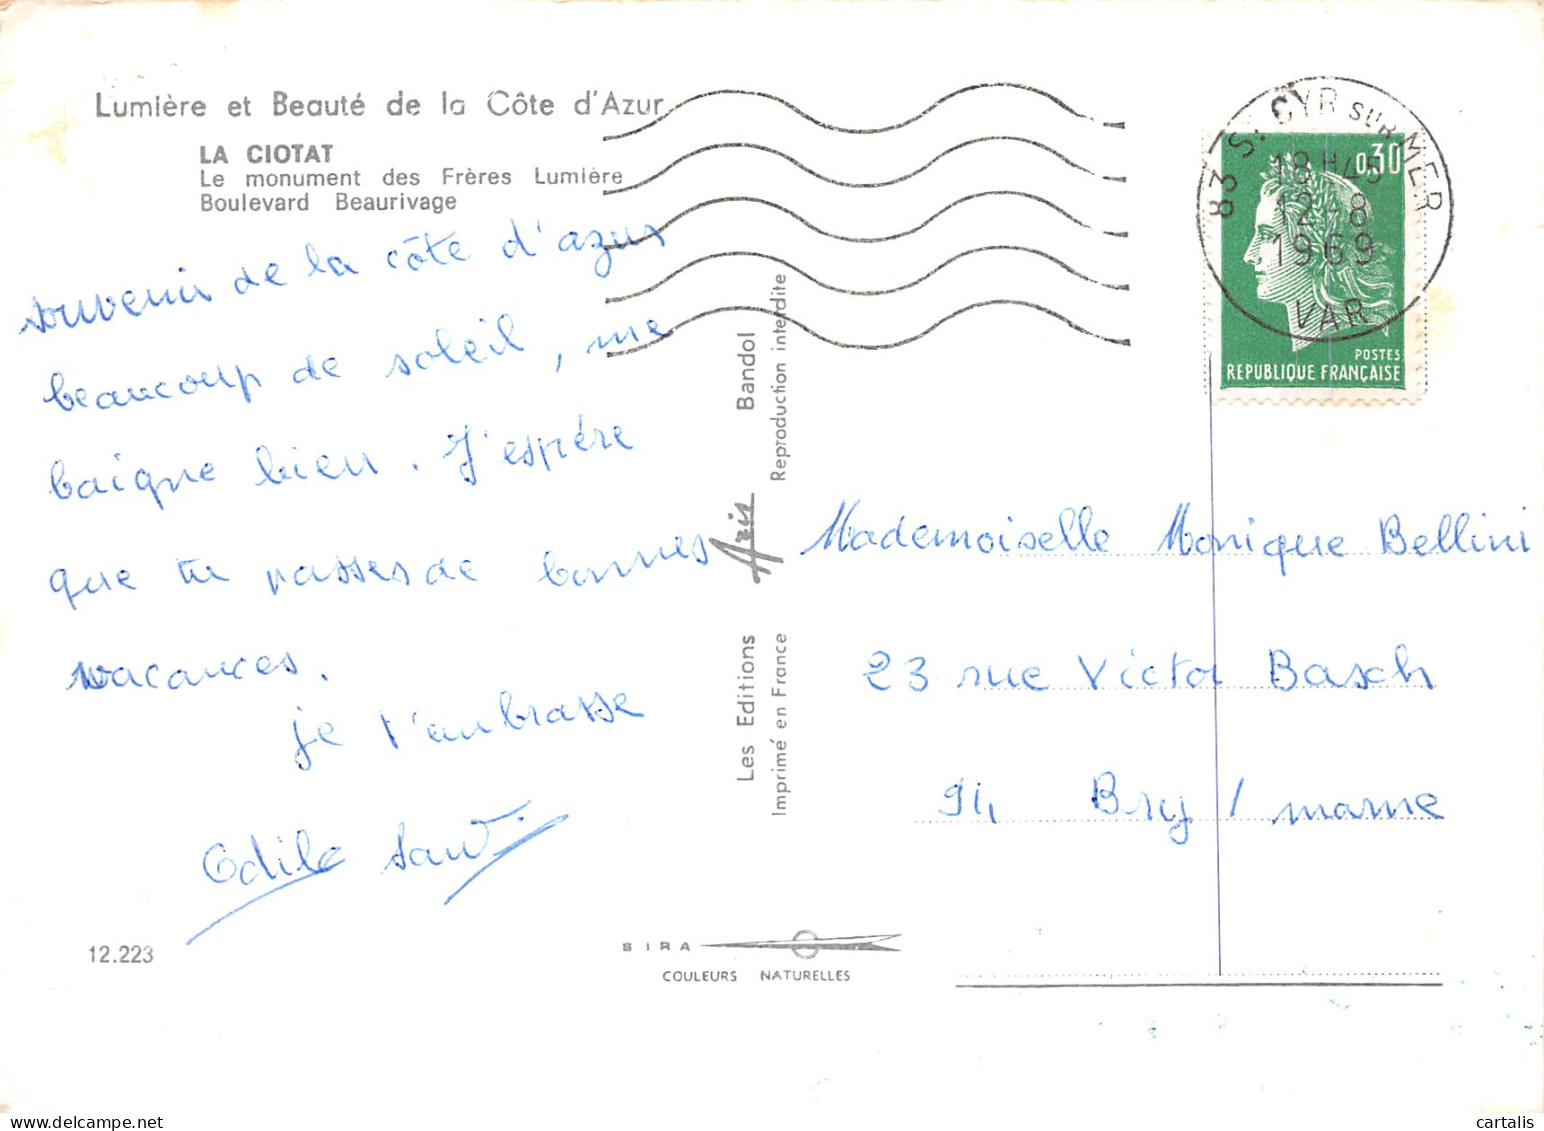 Lumière et Beauté de la Côte d'Azur
LA CIOTAT
Le monument des Frères Lumière
Boulevard Beaurivage
souvenir de la côte d'azur
beaucoup de soleil, me
baigne bien. J'espére
que tu passes de bonnes
vacances.
je t'embrasse
Odile
12.223
Les Editions Aris Bandol
Imprimé en France Reproduction interdite
SIRA
COULEURS NATURELLES
83 St CYR SUR MER
18H45
12-8
1969
VAR
0,30
POSTES
REPUBLIQUE FRANÇAISE
Mademoiselle Monique Bellini
23 rue Victor Basch
94 Bry / marne
cartalis